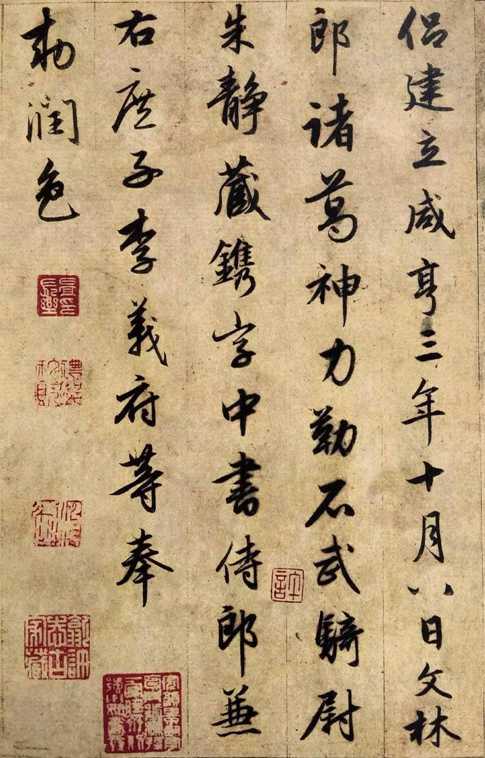 侣建立咸亨三年十月八日文林
郎诸葛神力勒石武骑尉
朱静藏镌字中書侍郎兼
右庶子李義府等奉
勅潤色